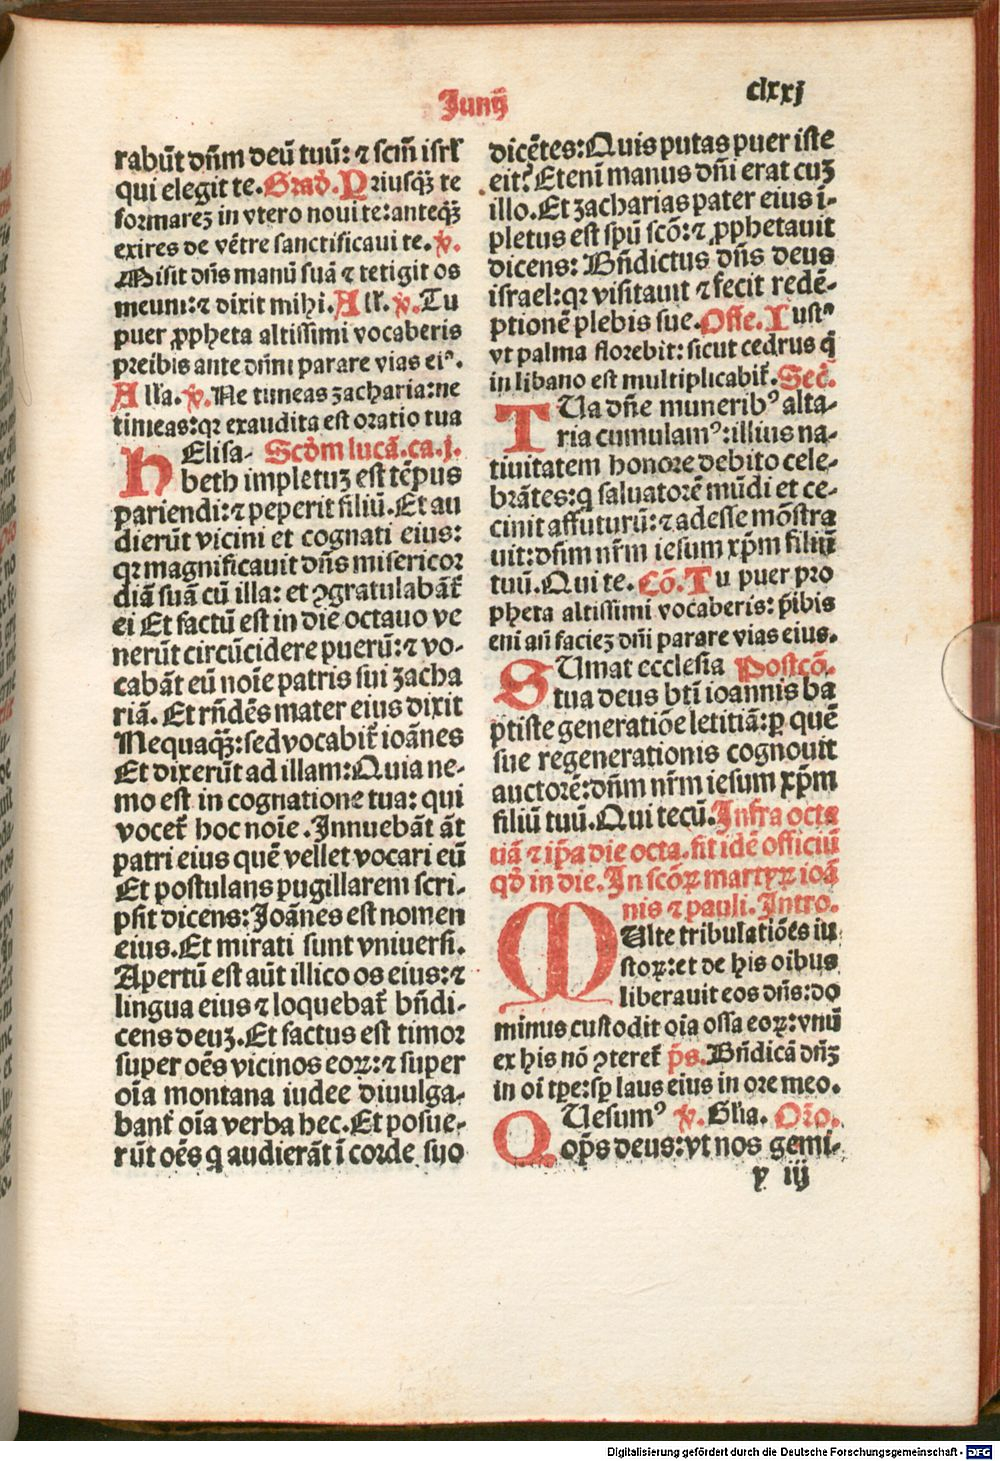 Junij
clxxj
rabūt dn̄m deū tuū: ⁊ scm̄ isrl̕
qui elegit te. Grad̕. Priusq̄ꝫ te
formareꝫ in vtero noui te: anteq̄ꝫ
exires de vētre sanctificaui te. ℣.
Misit dn̄s manū suā ⁊ tetigit os
meum: ⁊ dixit mihi. All̕. ℣. Tu
puer ꝓpheta altissimi vocaberis
preibis ante dn̄m parare vias eiꝰ.
All̕a. ℣. Ne timeas zacharia: ne
timeas: qꝛ exaudita est oratio tua
HElisa- Scd̕m lucā. ca. j.
beth impletuꝫ est tēpus
pariendi: ⁊ peperit filiū. Et au
dierūt vicini et cognati eius:
qꝛ magnificauit dn̄s misericor
diā suā cū illa: et ꝯgratulabāt̕
ei Et factū est in die octauo ve
nerūt circūcidere puerū: ⁊ vo-
cabāt eū noīe patris sui zacha
riā. Et rn̄dēs mater eius dixit
Nequaq̄ꝫ: sed vocabit̕ ioānes
Et dixerūt ad illam: Quia ne-
mo est in cognatione tua: qui
vocet̕ hoc noīe. Innuebāt āt
patri eius quē vellet vocari eū
Et postulans pugillarem scri-
psit dicens: Joānes est nomen
eius. Et mirati sunt vniuersi.
Apertū est aūt illico os eius: ⁊
lingua eius ⁊ loquebat̕ bn̄di-
cens deuꝫ. Et factus est timor
super oēs vicinos eoꝝ: ⁊ super
oīa montana iudee diuulga-
bant̕ oīa verba hec. Et posue-
rūt oēs q audierāt ī corde suo
dicētes: Quis putas puer iste
eit̕? Etenī manus dn̄i erat cuꝫ
illo. Et zacharias pater eius ī-
pletus est spū scō: ⁊ ꝓphetauit
dicens: Bn̄dictus dn̄s deus
israel: qꝛ visitauit ⁊ fecit redē-
ptionē plebis sue. Offe. Iustꝰ
vt palma florebit: sicut cedrus q̄
in libano est multiplicabit̕. Sec̕.
TUa dn̄e muneribꝰ alta-
ria cumulamꝰ: illius na-
tiuitatem honore debito cele-
brātes: q saluatorē mūdi et ce-
cinit affuturū: ⁊ adesse mōstra
uit: dn̄m nr̄m iesum xp̄m filiū
tuū. Qui te. Cō. Tu puer pro
pheta altissimi vocaberis: p̄ibis
eni an̄ facieꝫ dn̄i parare vias eius.
SUmat ecclesia Postcō.
tua deus bt̄i ioannis ba
ptiste generatiōe letitiā: ꝑ quē
sue regenerationis cognouit
auctorē: dn̄m nr̄m iesum xp̄m
filiū tuū. Qui tecū. Infra octa
uā ⁊ ip̄a die octa. fit idē officiū
qd̕ in die. In scōꝝ martyꝝ ioā
nis ⁊ pauli. Intro.
MUlte tribulatiōes iu
stoꝝ: et de his oibus
liberauit eos dn̄s: do
minus custodit oīa ossa eoꝝ: vnū
ex his nō ꝯteret̕ p̄s. Bn̄dicā dn̄ꝫ
in oī tꝑe: sꝑ laus eius in ore meo.
QUesumꝰ ℣. Gl̕ia. Orō.
op̄s deus: vt nos gemi-
y iij
Digitalisierung gefördert durch die Deutsche Forschungsgemeinschaft - DFG